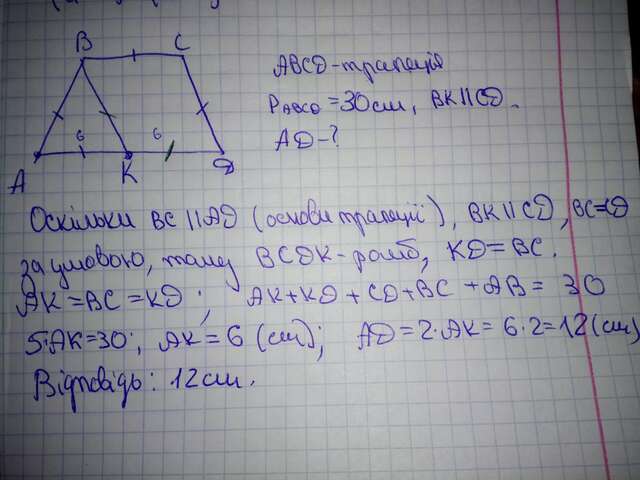 A
B
C
K
D
6
6
ABCD - трапеція
Pᴀʙᴄᴅ = 30 см, BK || CD.
AD - ?
Оскільки BC || AD (основи трапеції), BK || CD, BC = CD
за умовою, тому BCDK - ромб, KD = BC.
AK = BC = KD. AK + KD + CD + BC + AB = 30
5·AK = 30; AK = 6 (см); AD = 2·AK = 6·2 = 12 (см)
Відповідь: 12 см.